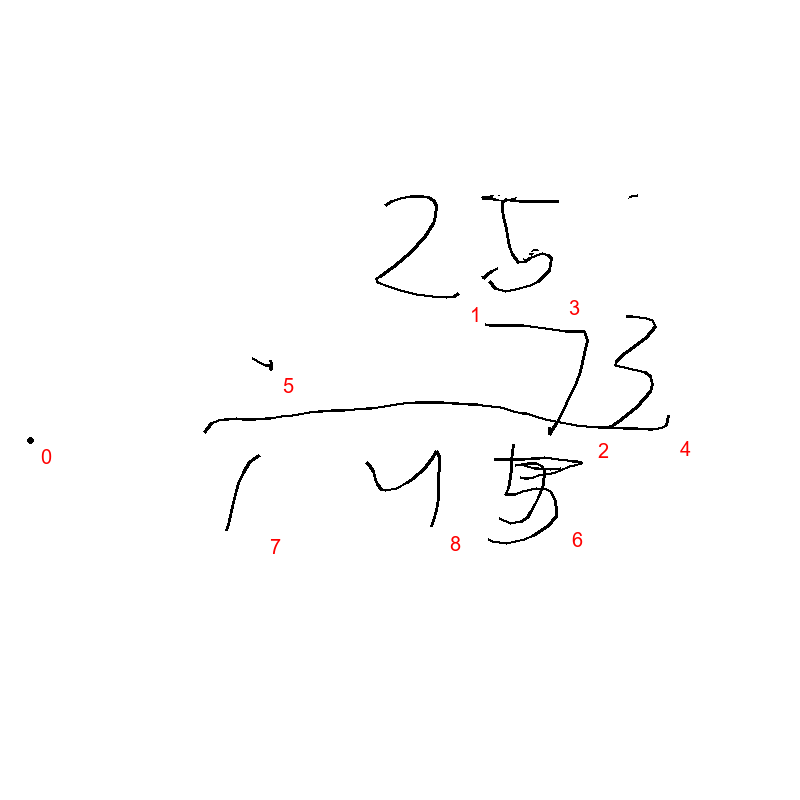 25
1 3
73
5
2 4
0
145
7 8 6